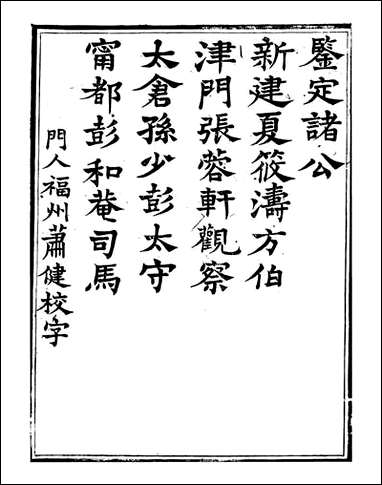 鑒定諸公
新建夏筱濤方伯
津門張蓉軒觀察
太倉孫少彭太守
甯都彭和菴司馬
門人福州蕭健校字